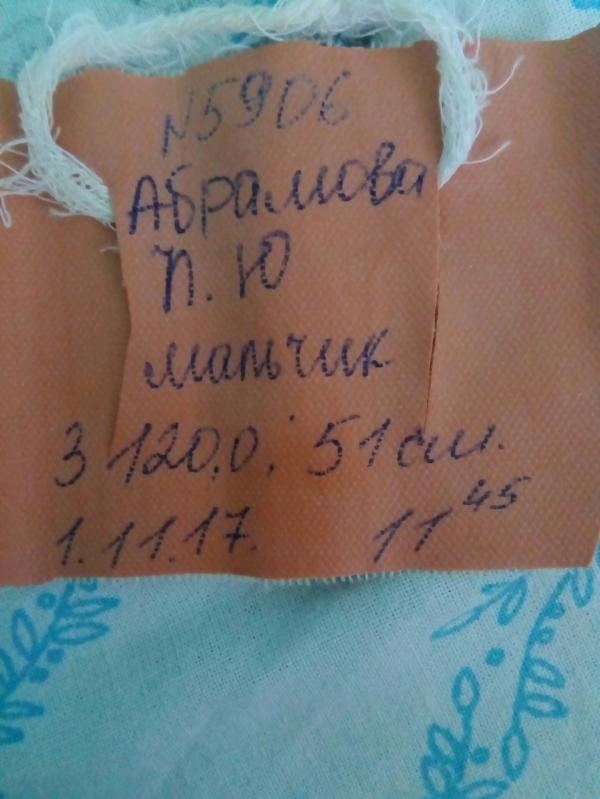 N5906
Абрамова
П. Ю
мальчик
3 120,0; 51 см.
1.11.17. 11 45